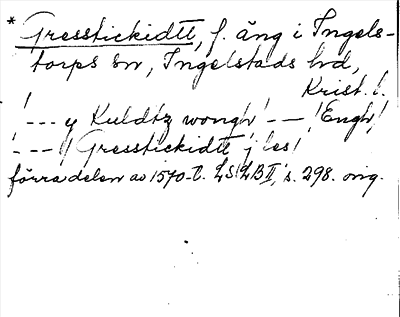 * Gresstickidtt, f. äng i Ingels-
torps sn, Ingelstads hd,
Krist. l.
!--- y Kuldtz wongh! -- !Engh!
!--- !/ Gresstickidtt j les!
förra delen av 1570-t. LSLB II, s. 298. orig.